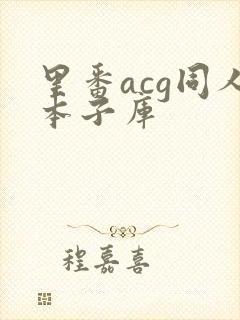 里番acg同人
本子库
程嘉喜